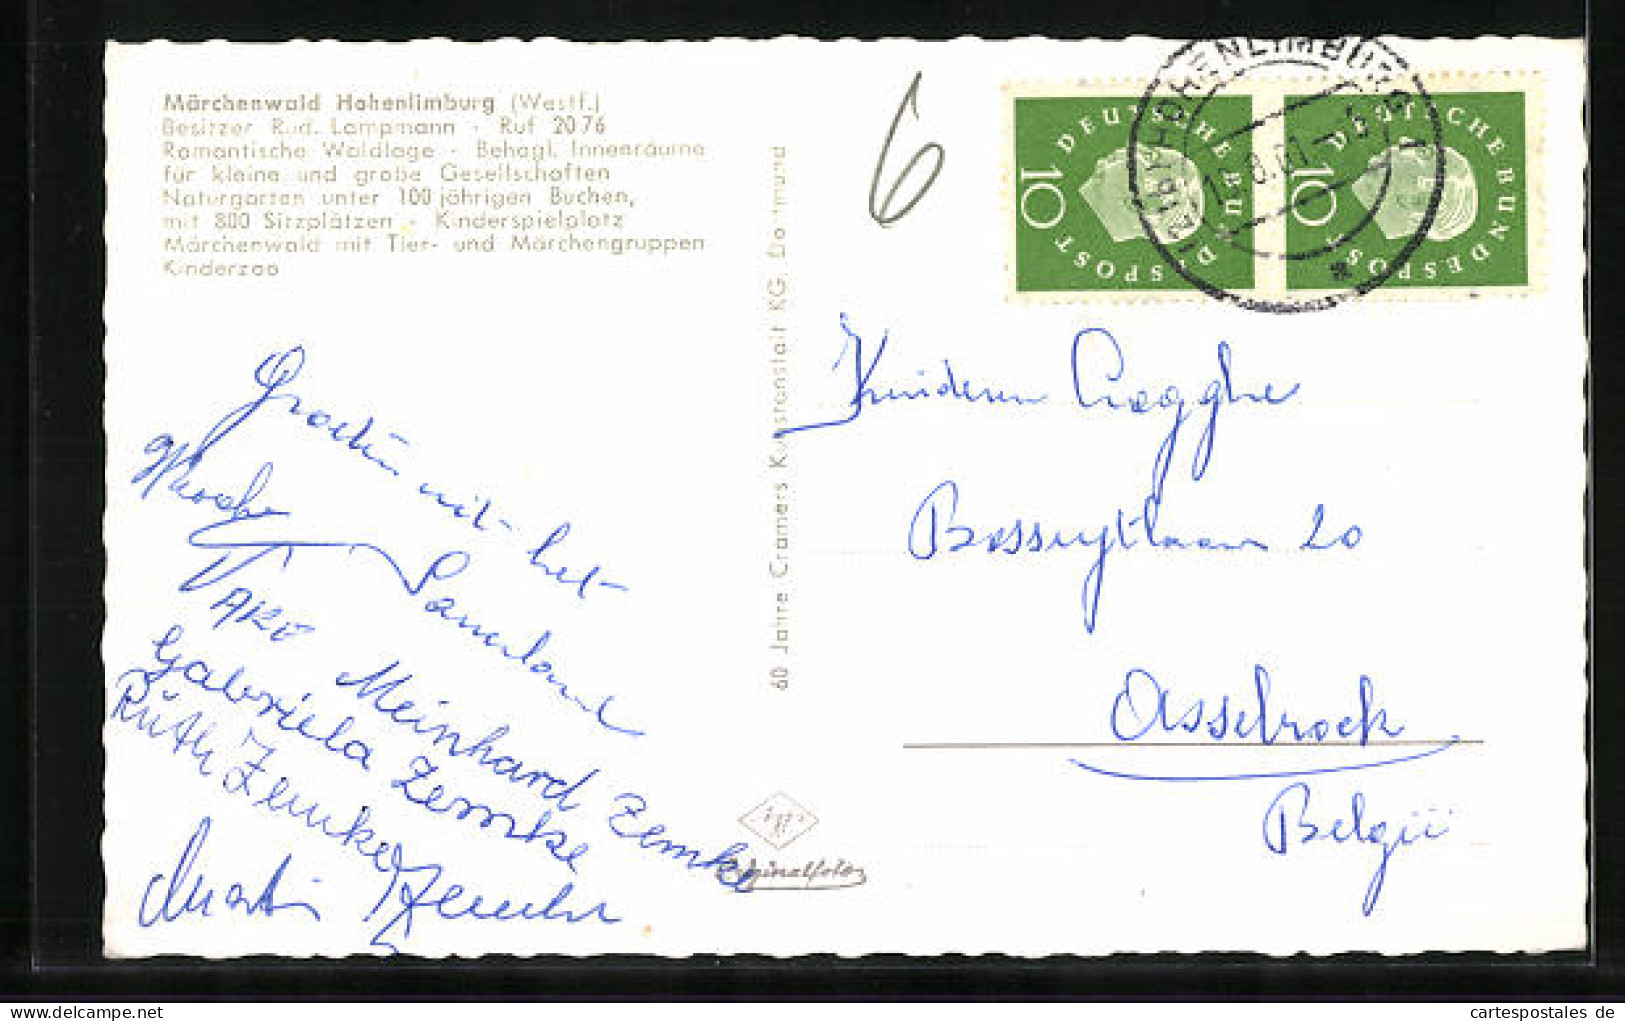 Märchenwald Hohenlimburg (Westf.)
Besitzer Rud. Lampmann - Ruf 2076
Romantische Waldlage - Behagl. Innenräume
für kleine und große Gesellschaften
Naturgarten unter 100jährigen Buchen,
mit 800 Sitzplätzen - Kinderspielplatz
Märchenwald mit Tier- und Märchengruppen
Kinderzoo
6
DEUTSCHE BUNDESPOST
10
DEUTSCHE BUNDESPOST
10
HOHENLIMBURG
60 Jahre Cramers Kunstanstalt KG, Dortmund
Kinderen
20
Asselrock
België
uit het
Sauerland
Meinhard Zemke
Gabriela Zemke
Ruth Zemke
Martin Zemke
Originalfoto
cartespostales de